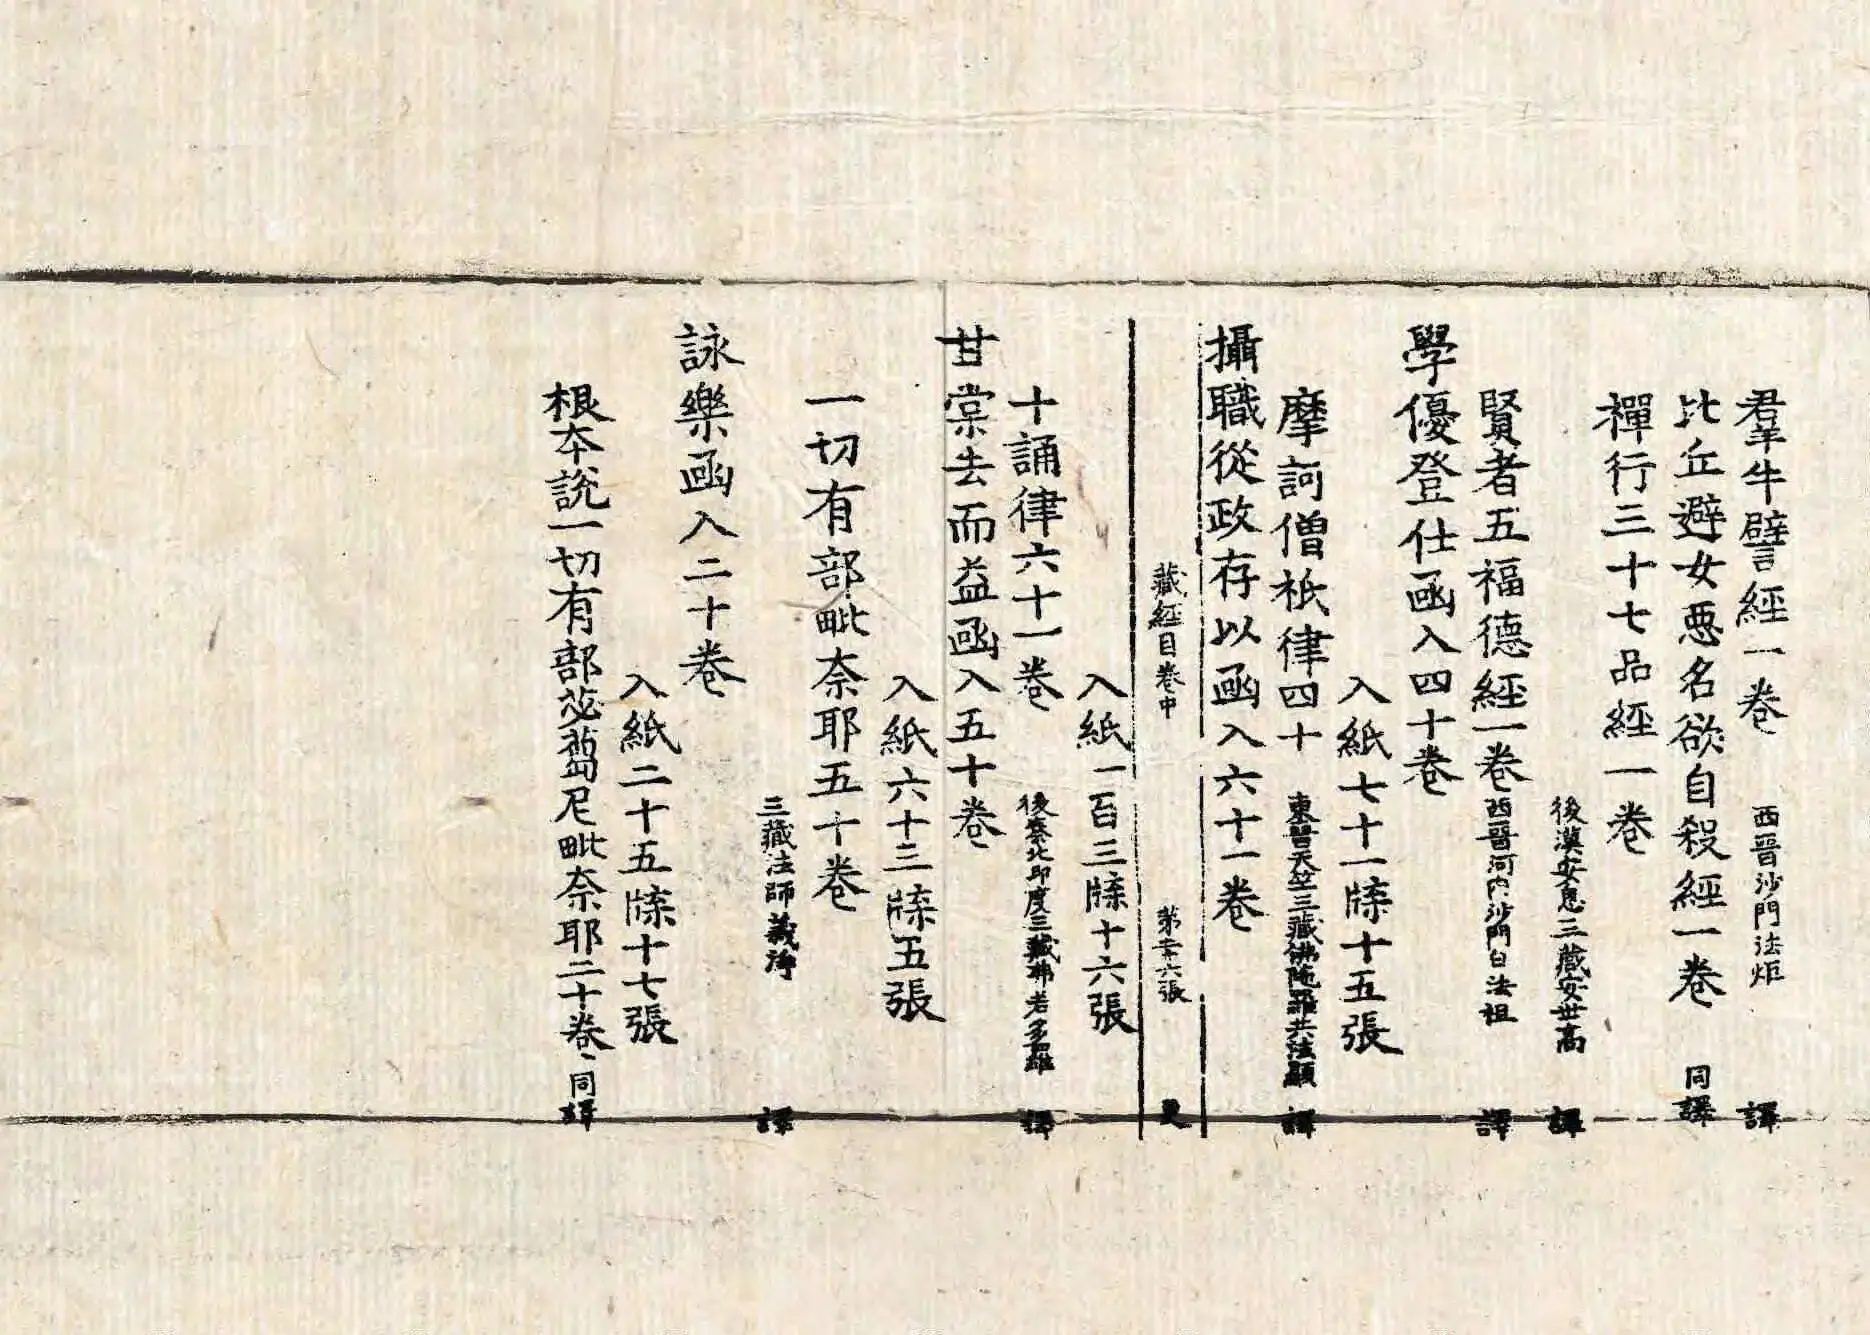 羣牛譬經一卷 西晉沙門法炬 譯
比丘避女惡名欲自殺經一卷 同譯
禪行三十七品經一卷
後漢安息三藏安世高 譯
賢者五福德經一卷 西晉河內沙門白法祖 譯
學優登仕函入四十卷
入紙七十一牒十五張
摩訶僧祇律四十 東晉天竺三藏佛陁羅共法顯 譯
攝職從政存以函入六十一卷
藏經目卷中 第二十六張 更
入紙一百三牒十六張
十誦律六十一卷 後秦北印度三藏弗若多羅 譯
甘棠去而益函入五十卷
入紙六十三牒五張
一切有部毗奈耶五十卷
三藏法師義淨 譯
詠樂函入二十卷
入紙二十五牒十七張
根本說一切有部苾蒭尼毗奈耶二十卷、同譯